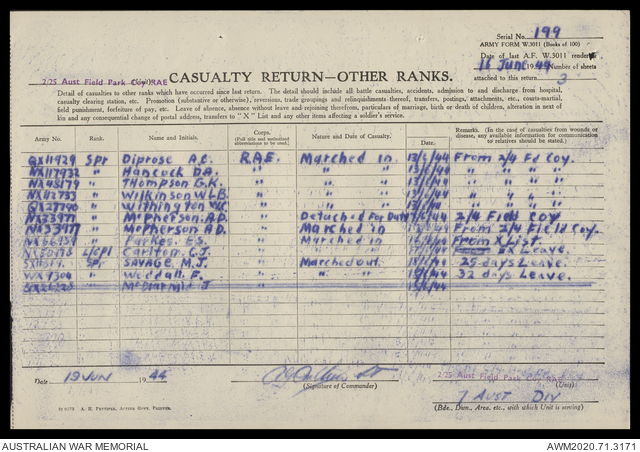 Serial No. 199
ARMY FORM W.3011 (Books of 100)
Date of last A.F. W.3011 rendered
16 June 1944 Number of sheets
attached to this return 3
2/25 Aust Field Park Coy RAE CASUALTY RETURN—OTHER RANKS.
Detail of casualties to other ranks which have occurred since last return. The detail should include all battle casualties, accidents, admission to and discharge from hospital,
casualty clearing station, etc. Promotion (substantive or otherwise), reversions, trade groupings and relinquishments thereof, transfers, postings, attachments, etc., courts-martial,
field punishment, forfeiture of pay, etc. Leave of absence, absence without leave and rejoining therefrom, particulars of marriage, birth or death of children, alteration in next of
kin and any consequential change of postal address, transfers to "X" List and any other items affecting a soldier's service.
Army No. Rank. Name and Initials. Corps. (Full title and authorized abbreviations to be used.) Nature and Date of Casualty. Remarks. (In the case of casualties from wounds or disease, any available information for communication to relatives should be stated.)
QX11929 Spr Diprose A.C. R.A.E. Marched in 13/6/44 From 2/4 Fd Coy.
NX117932 " Hancock D.A. " " " 13/6/44 " " " "
NX45179 " Thompson G.K. " " " 13/6/44 " " " "
" Wilkinson W.L.B. " " " 13/6/44 " " " "
" Withington W.C. " " " 13/6/44 " " " "
NX33977 " McPherson A.D. " Detached For Duty 2/4 Field Coy
NX33977 " McPherson A.D. " Marched in From 2/4 Field Coy.
" Parkes E.S. " Marched in From X List.
L/Cpl Carlton C.J. " " " Leave.
Spr Savage M.J. " Marched out 25 days Leave.
WX9304 " Weddall F. " " " 32 days Leave.
" McDiarmid J 15/6/44
Date 19 JUN 1944
(Signature of Commander)
2/25 Aust Field Park Coy RAE
(Unit)
7 AUST DIV
(Bde., Divn., Area, etc., with which Unit is serving)
A. H. Pettifer, Acting Govt. Printer.
AUSTRALIAN WAR MEMORIAL AWM2020.71.3171